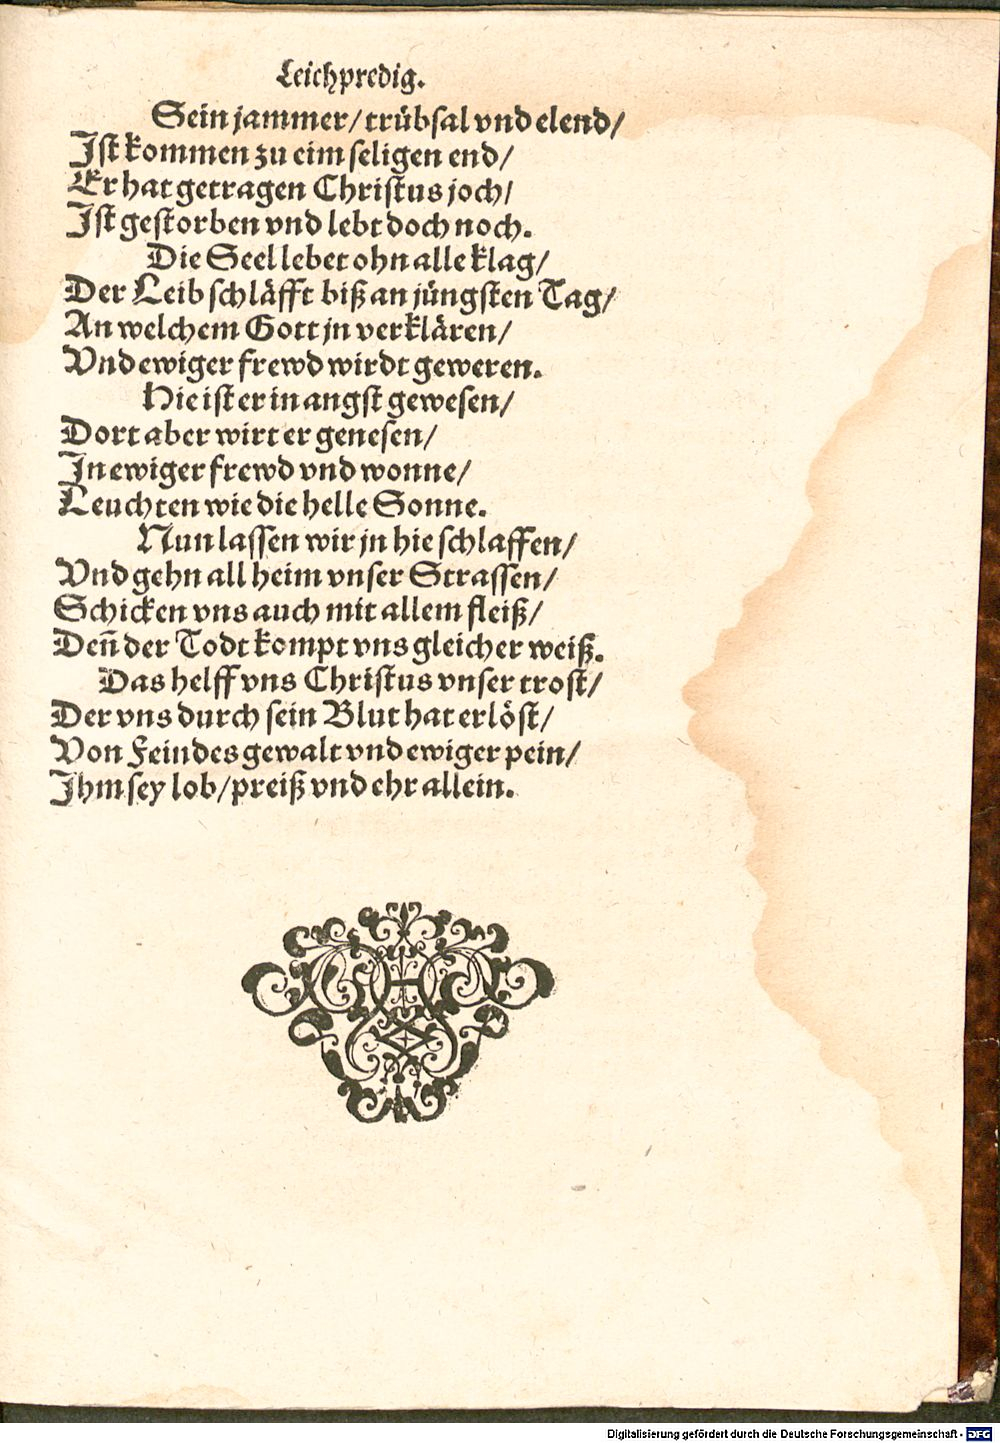 Leichpredig.
Sein jammer/ trübsal vnd elend/
Ist kommen zu eim seligen end/
Er hat getragen Christus joch/
Ist gestorben vnd lebt doch noch.
Die Seel lebet ohn alle klag/
Der Leib schläfft biß an jüngsten Tag/
An welchem Gott jn verklären/
Vnd ewiger frewd wirdt geweren.
Hie ist er in angst gewesen/
Dort aber wirt er genesen/
In ewiger frewd vnd wonne/
Leuchten wie die helle Sonne.
Nun lassen wir jn hie schlaffen/
Vnd gehn all heim vnser Strassen/
Schicken vns auch mit allem fleiß/
Deñ der Todt kompt vns gleicher weiß.
Das helff vns Christus vnser trost/
Der vns durch sein Blut hat erlöst/
Von Feindes gewalt vnd ewiger pein/
Ihm sey lob/ preiß vnd ehr allein.
Digitalisierung gefördert durch die Deutsche Forschungsgemeinschaft - DFG